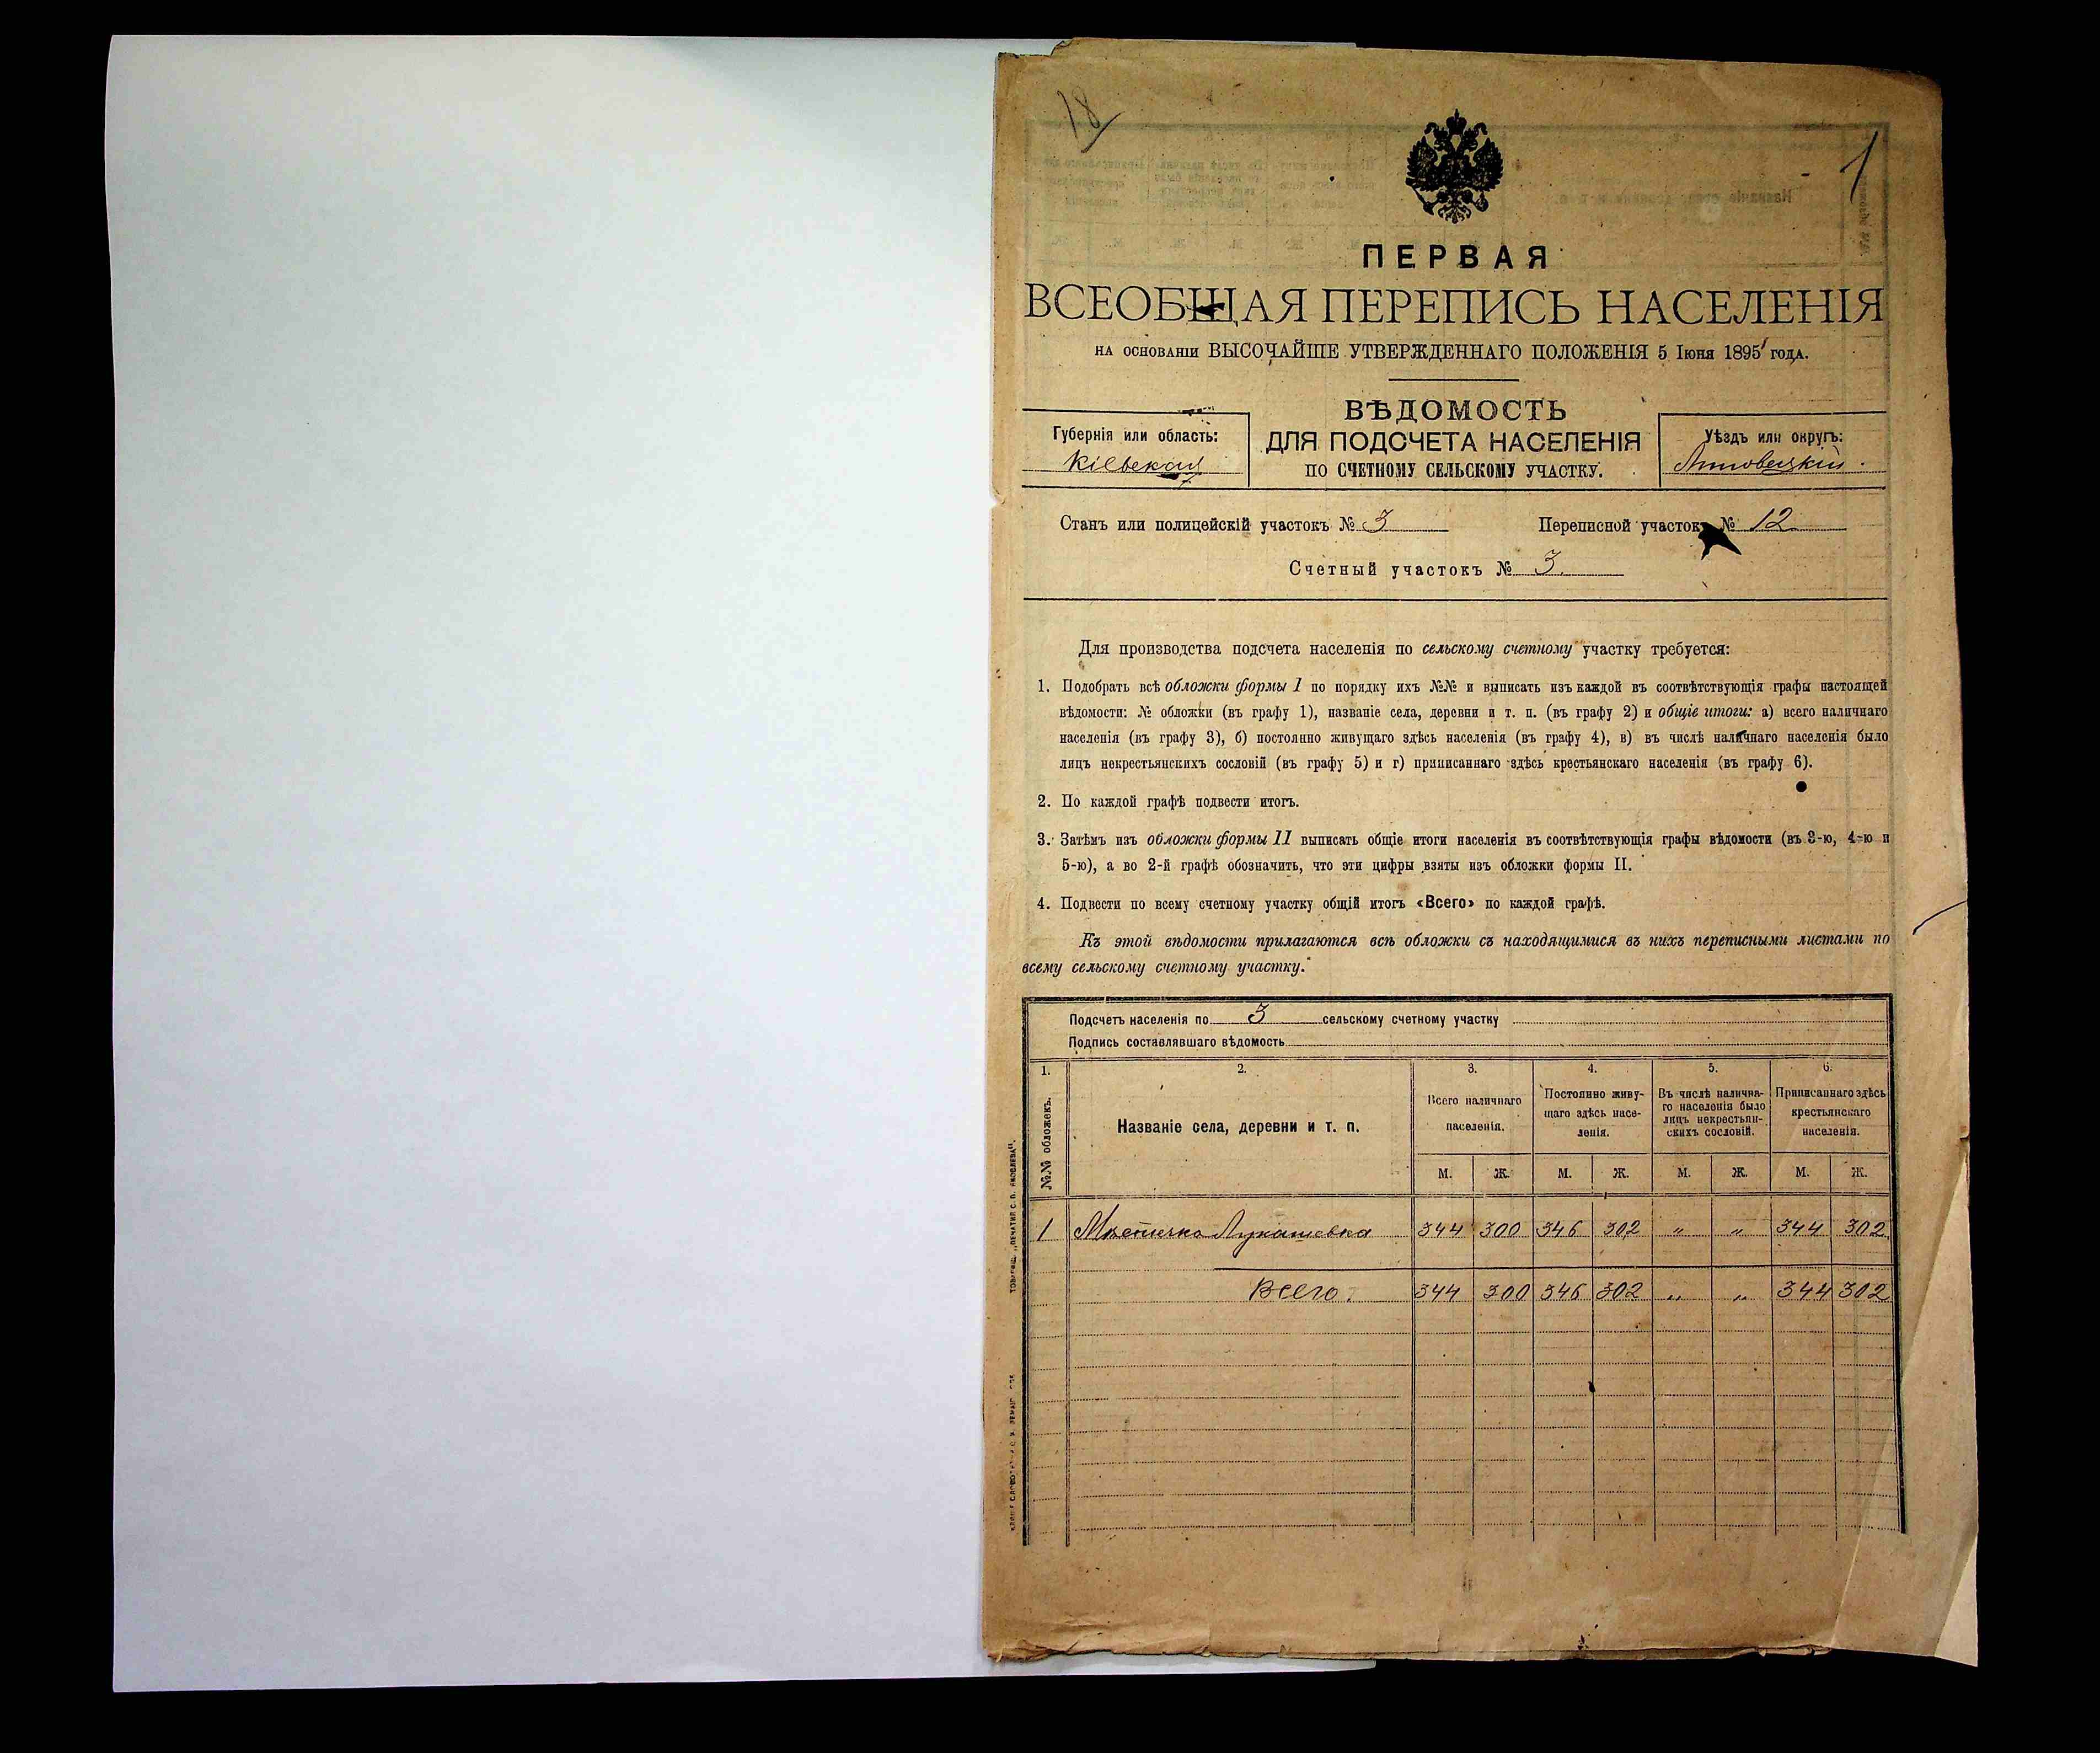 18
1
ПЕРВАЯ
ВСЕОБЩАЯ ПЕРЕПИСЬ НАСЕЛЕНІЯ
НА ОСНОВАНІИ ВЫСОЧАЙШЕ УТВЕРЖДЕННАГО ПОЛОЖЕНІЯ 5 Іюня 1895 ГОДА.
ВѢДОМОСТЬ
ДЛЯ ПОДСЧЕТА НАСЕЛЕНІЯ
ПО СЧЕТНОМУ СЕЛЬСКОМУ УЧАСТКУ.
Губернія или область:
Кіевская
Уѣздъ или округъ:
Липовецкій
Станъ или полицейскій участокъ № 3 Переписной участокъ № 12
Счетный участокъ № 3.
Для производства подсчета населенія по сельскому счетному участку требуется:
1. Подобрать всѣ обложки формы I по порядку ихъ №№ и выписать изъ каждой въ соотвѣтствующія графы настоящей
вѣдомости: № обложки (въ графу 1), названіе села, деревни и т. п. (въ графу 2) и общіе итоги: а) всего наличнаго
населенія (въ графу 3), б) постоянно живущаго здѣсь населенія (въ графу 4), в) въ числѣ наличнаго населенія было
лицъ некрестьянскихъ сословій (въ графу 5) и г) приписаннаго здѣсь крестьянскаго населенія (въ графу 6).
2. По каждой графѣ подвести итогъ.
3. Затѣмъ изъ обложки формы II выписать общіе итоги населенія въ соотвѣтствующія графы вѣдомости (въ 3-ю, 4-ю и
5-ю), а во 2-й графѣ обозначить, что эти цифры взяты изъ обложки формы II.
4. Подвести по всему счетному участку общій итогъ «Всего» по каждой графѣ.
Къ этой вѣдомости прилагаются всѣ обложки съ находящимися въ нихъ переписными листами по
всему сельскому счетному участку.
Подсчетъ населенія по 3 сельскому счетному участку
Подпись составлявшаго вѣдомость
1. 2. 3. 4. 5. 6.
№№ обложекъ.
Названіе села, деревни и т. п.
Всего наличнаго
населенія.
Постоянно живу-
щаго здѣсь насе-
ленія.
Въ числѣ налична-
го населенія было
лицъ некрестьян-
скихъ сословій.
Приписаннаго здѣсь
крестьянскаго
населенія.
М. Ж. М. Ж. М. Ж. М. Ж.
1 Мѣстечко Лукашевка 344 300 346 302 " " 344 302
Всего. 344 300 346 302 " " 344 302
ТОВАРИЩ. „ПЕЧАТНЯ С. П. ЯКОВЛЕВА".